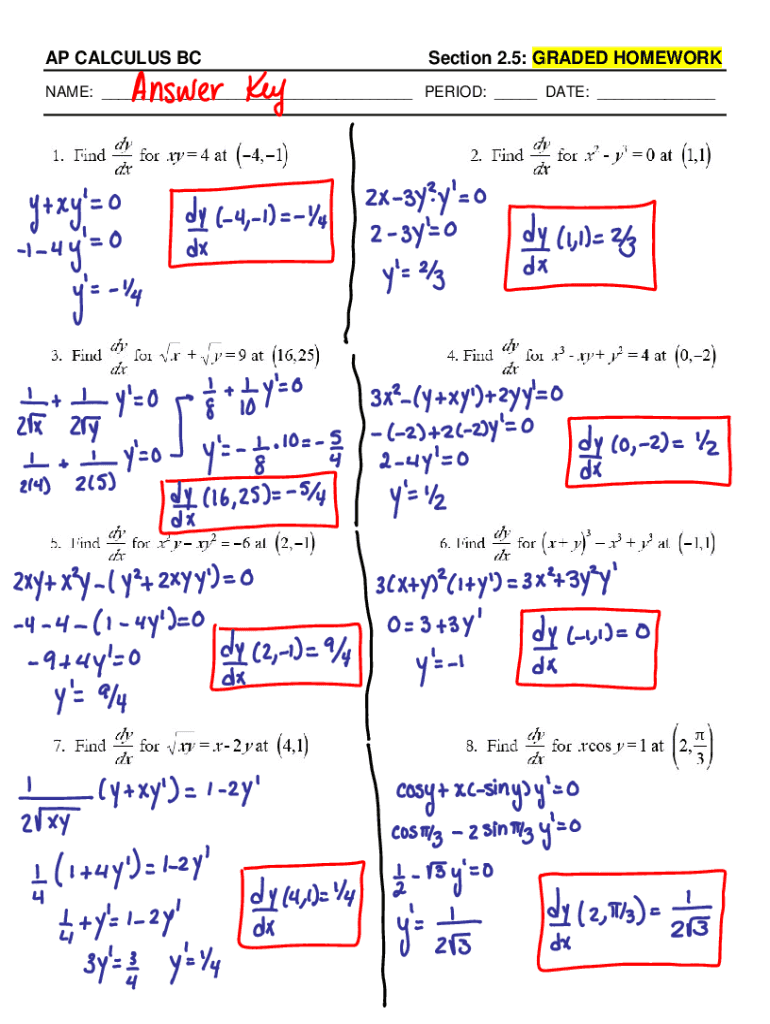 AP CALCULUS BC Section 2.5: GRADED HOMEWORK
NAME: Answer Key PERIOD: _____ DATE: _____
1. Find dy/dx for xy = 4 at (-4,-1)
y+xy'=0
-1-4y'=0
y'=-1/4
dy/dx (-4,-1)=-1/4
2. Find dy/dx for x² - y³ = 0 at (1,1)
2x-3y²·y'=0
2-3y'=0
y'=2/3
dy/dx (1,1)=2/3
3. Find dy/dx for √x + √y = 9 at (16,25)
1/(2√x) + 1/(2√y) y'=0
1/(2(4)) + 1/(2(5)) y'=0
1/8 + 1/10 y'=0
y'=-1/8·10=-5/4
dy/dx (16,25)=-5/4
4. Find dy/dx for x³ - xy + y² = 4 at (0,-2)
3x²-(y+xy')+2yy'=0
-(-2)+2(-2)y'=0
2-4y'=0
y'=1/2
dy/dx (0,-2)=1/2
5. Find dy/dx for x²y - xy² = -6 at (2,-1)
2xy+x²y-(y²+2xyy')=0
-4-4-(1-4y')=0
-9+4y'=0
y'=9/4
dy/dx (2,-1)=9/4
6. Find dy/dx for (x+y)³ = x³ + y³ at (-1,1)
3(x+y)²(1+y')=3x²+3y²y'
0=3+3y'
y'=-1
dy/dx (-1,1)=0
7. Find dy/dx for √xy = x - 2y at (4,1)
1/(2√xy) (y+xy')=1-2y'
1/4 (1+4y')=1-2y'
1/4+y'=1-2y'
3y'=3/4 y'=1/4
dy/dx (4,1)=1/4
8. Find dy/dx for xcos y = 1 at (2, π/3)
cosy+x(-siny)y'=0
cosπ/3-2sinπ/3y'=0
1/2-√3y'=0
y'=1/(2√3)
dy/dx (2,π/3)=1/(2√3)